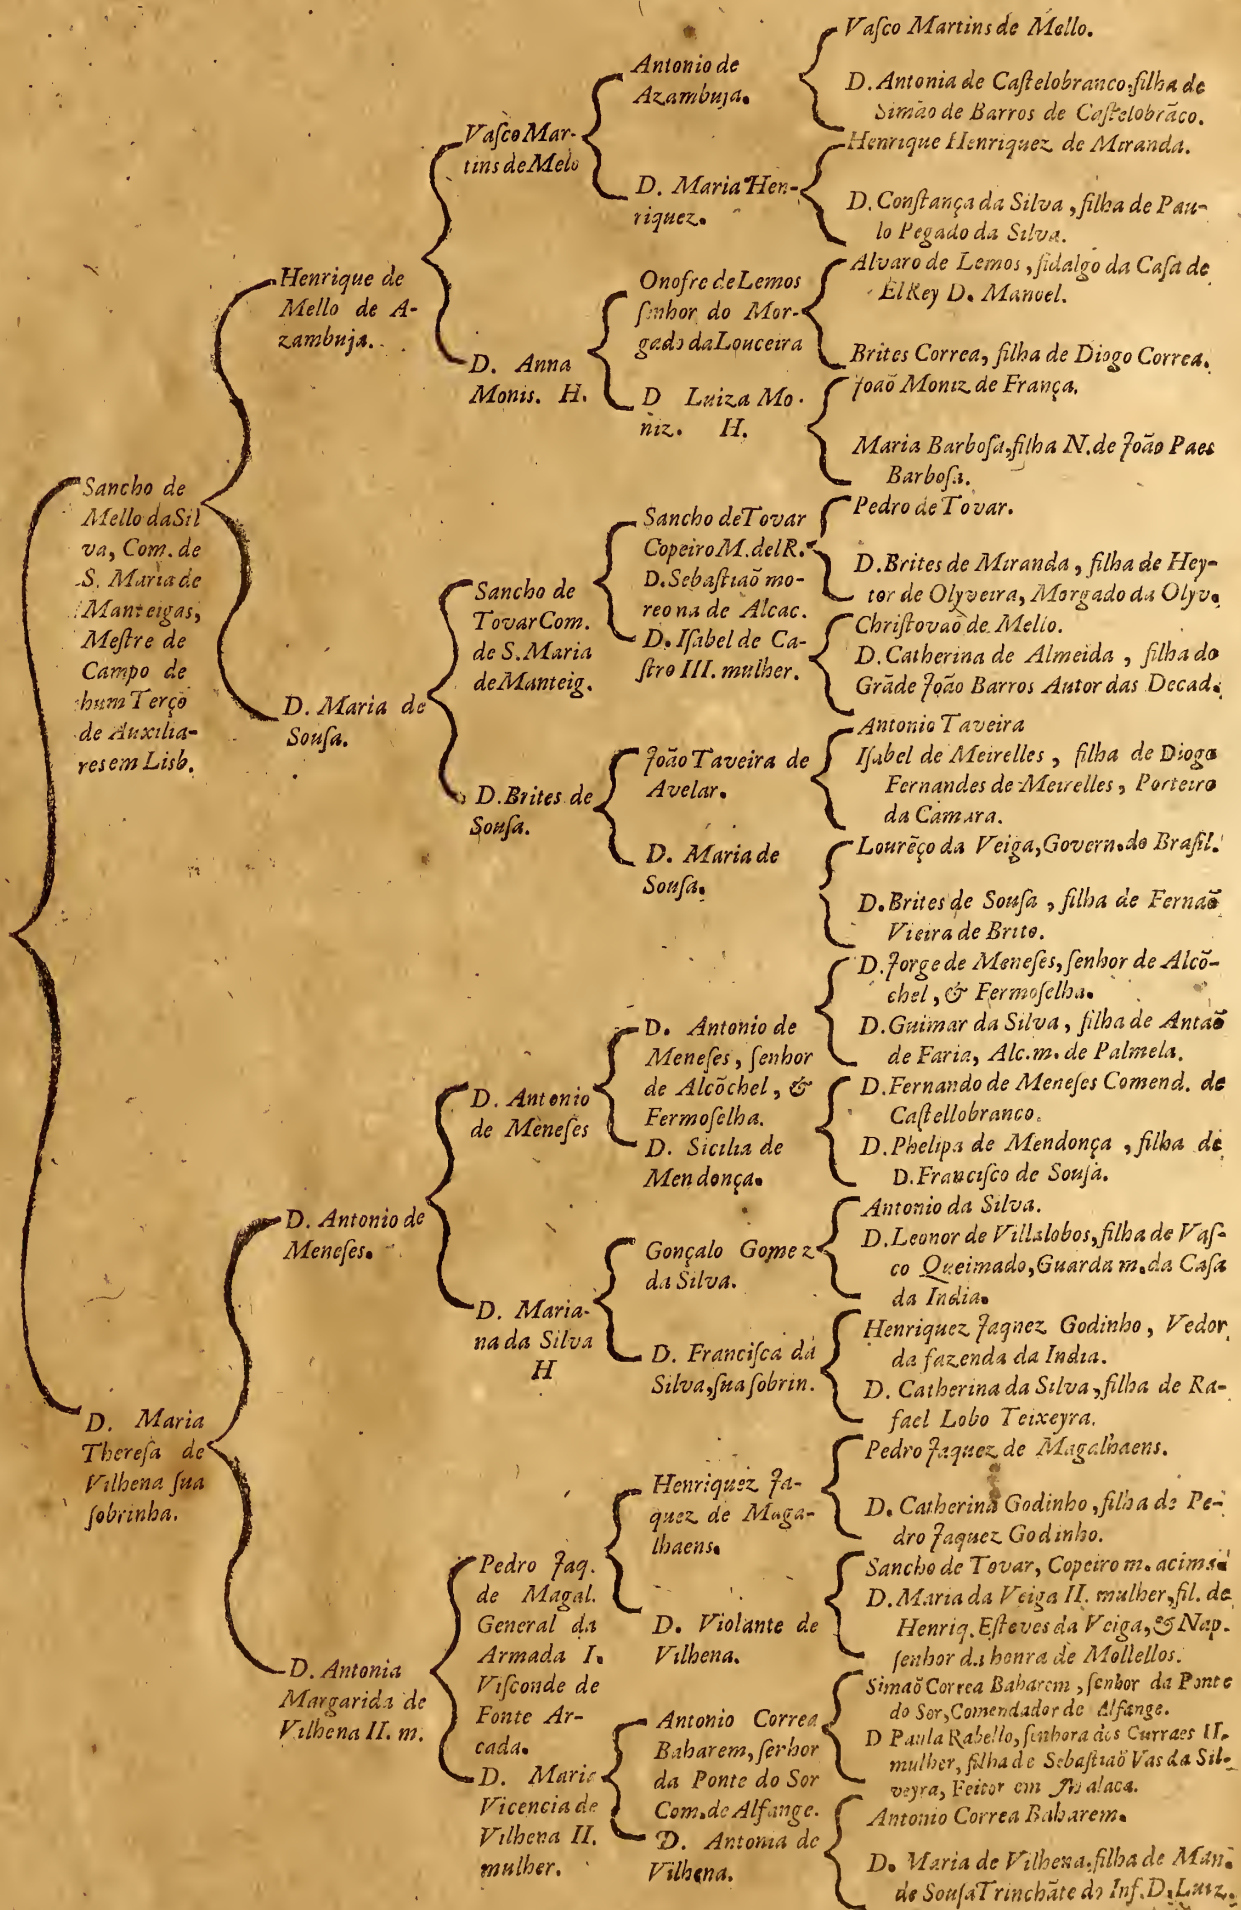 Sancho de
Mello da Sil
va, Com. de
S. Maria de
Manteigas,
Meſtre de
Campo de
hum Terço
de Auxilia-
res em Lisb.
D. Maria
Thereſa de
Vilhena ſua
ſobrinha.
Henrique de
Mello de A-
zambuja.
D. Maria de
Souſa.
D. Antonio de
Meneſes.
D. Antonia
Margarida de
Vilhena II. m.
Vaſco Mar-
tins de Melo
D. Anna
Monis. H.
Sancho de
Tovar Com.
de S. Maria
de Manteig.
D. Brites de
Souſa.
D. Antonio
de Meneſes
D. Maria-
na da Silva
H
Pedro Jaq.
de Magal.
General da
Armada I.
Viſconde de
Fonte Ar-
cada.
D. Maria
Vicencia de
Vilhena II.
mulher.
Antonio de
Azambuja.
D. Maria Hen-
riquez.
Onofre de Lemos
ſenhor do Mor-
gado da Louceira
D Luiza Mo.
niz. H.
Sancho de Tovar
Copeiro M. del R.
D. Sebaſtiaõ mo-
reo na de Alcac.
D. Iſabel de Ca-
ſtro III. mulher.
João Taveira de
Avelar.
D. Maria de
Souſa.
D. Antonio de
Meneſes, ſenhor
de Alcõchel, &
Fermoſelha.
D. Sicilia de
Mendonça.
Gonçalo Gomez
da Silva.
D. Franciſca da
Silva, ſua ſobrin.
Henriquez Ja-
quez de Maga-
lhaens.
D. Violante de
Vilhena.
Antonio Correa
Baharem, ſenhor
da Ponte do Sor
Com. de Alfange.
D. Antonia de
Vilhena.
Vaſco Martins de Mello.
D. Antonia de Caſtelobranco, filha de
Simão de Barros de Caſtelobrãco.
Henrique Henriquez de Miranda.
D. Conſtança da Silva, filha de Pau-
lo Pegado da Silva.
Alvaro de Lemos, fidalgo da Caſa de
ElRey D. Manoel.
Brites Correa, filha de Diogo Correa.
Joaõ Moniz de França.
Maria Barboſa, filha N. de João Paes
Barboſa.
Pedro de Tovar.
D. Brites de Miranda, filha de Hey-
tor de Olyveira, Morgado da Olyv.
Chriſtovaõ de Mello.
D. Catherina de Almeida, filha do
Grãde João Barros Autor das Decad.
Antonio Taveira
Iſabel de Meirelles, filha de Diogo
Fernandes de Meirelles, Porteiro
da Camara.
Lourẽço da Veiga, Govern. do Braſil.
D. Brites de Souſa, filha de Fernaõ
Vieira de Brito.
D. Jorge de Meneſes, ſenhor de Alcõ-
chel, & Fermoſelha.
D. Guimar da Silva, filha de Antaõ
de Faria, Alc. m. de Palmela.
D. Fernando de Meneſes Comend. de
Caſtellobranco.
D. Phelipa de Mendonça, filha de
D. Franciſco de Souſa.
Antonio da Silva.
D. Leonor de Villalobos, filha de Vaſ-
co Queimado, Guarda m. da Caſa
da India.
Henriquez Jaquez Godinho, Vedor
da fazenda da India.
D. Catherina da Silva, filha de Ra-
fael Lobo Teixeyra.
Pedro Jaquez de Magalhaens.
D. Catherina Godinho, filha de Pe-
dro Jaquez Godinho.
Sancho de Tovar, Copeiro m. acima
D. Maria da Veiga II. mulher, fil. de
Henriq. Eſteves da Veiga, & Nap.
ſenhor da honra de Mollellos.
Simaõ Correa Baharem, ſenhor da Ponte
do Sor, Comendador de Alfange.
D Paula Rabello, ſenhora dos Curraes II.
mulher, filha de Sebaſtiaõ Vas da Sil-
veyra, Feitor em Malaca.
Antonio Correa Baharem.
D. Maria de Vilhena, filha de Man.
de Souſa Trinchãte do Inf. D. Luiz.